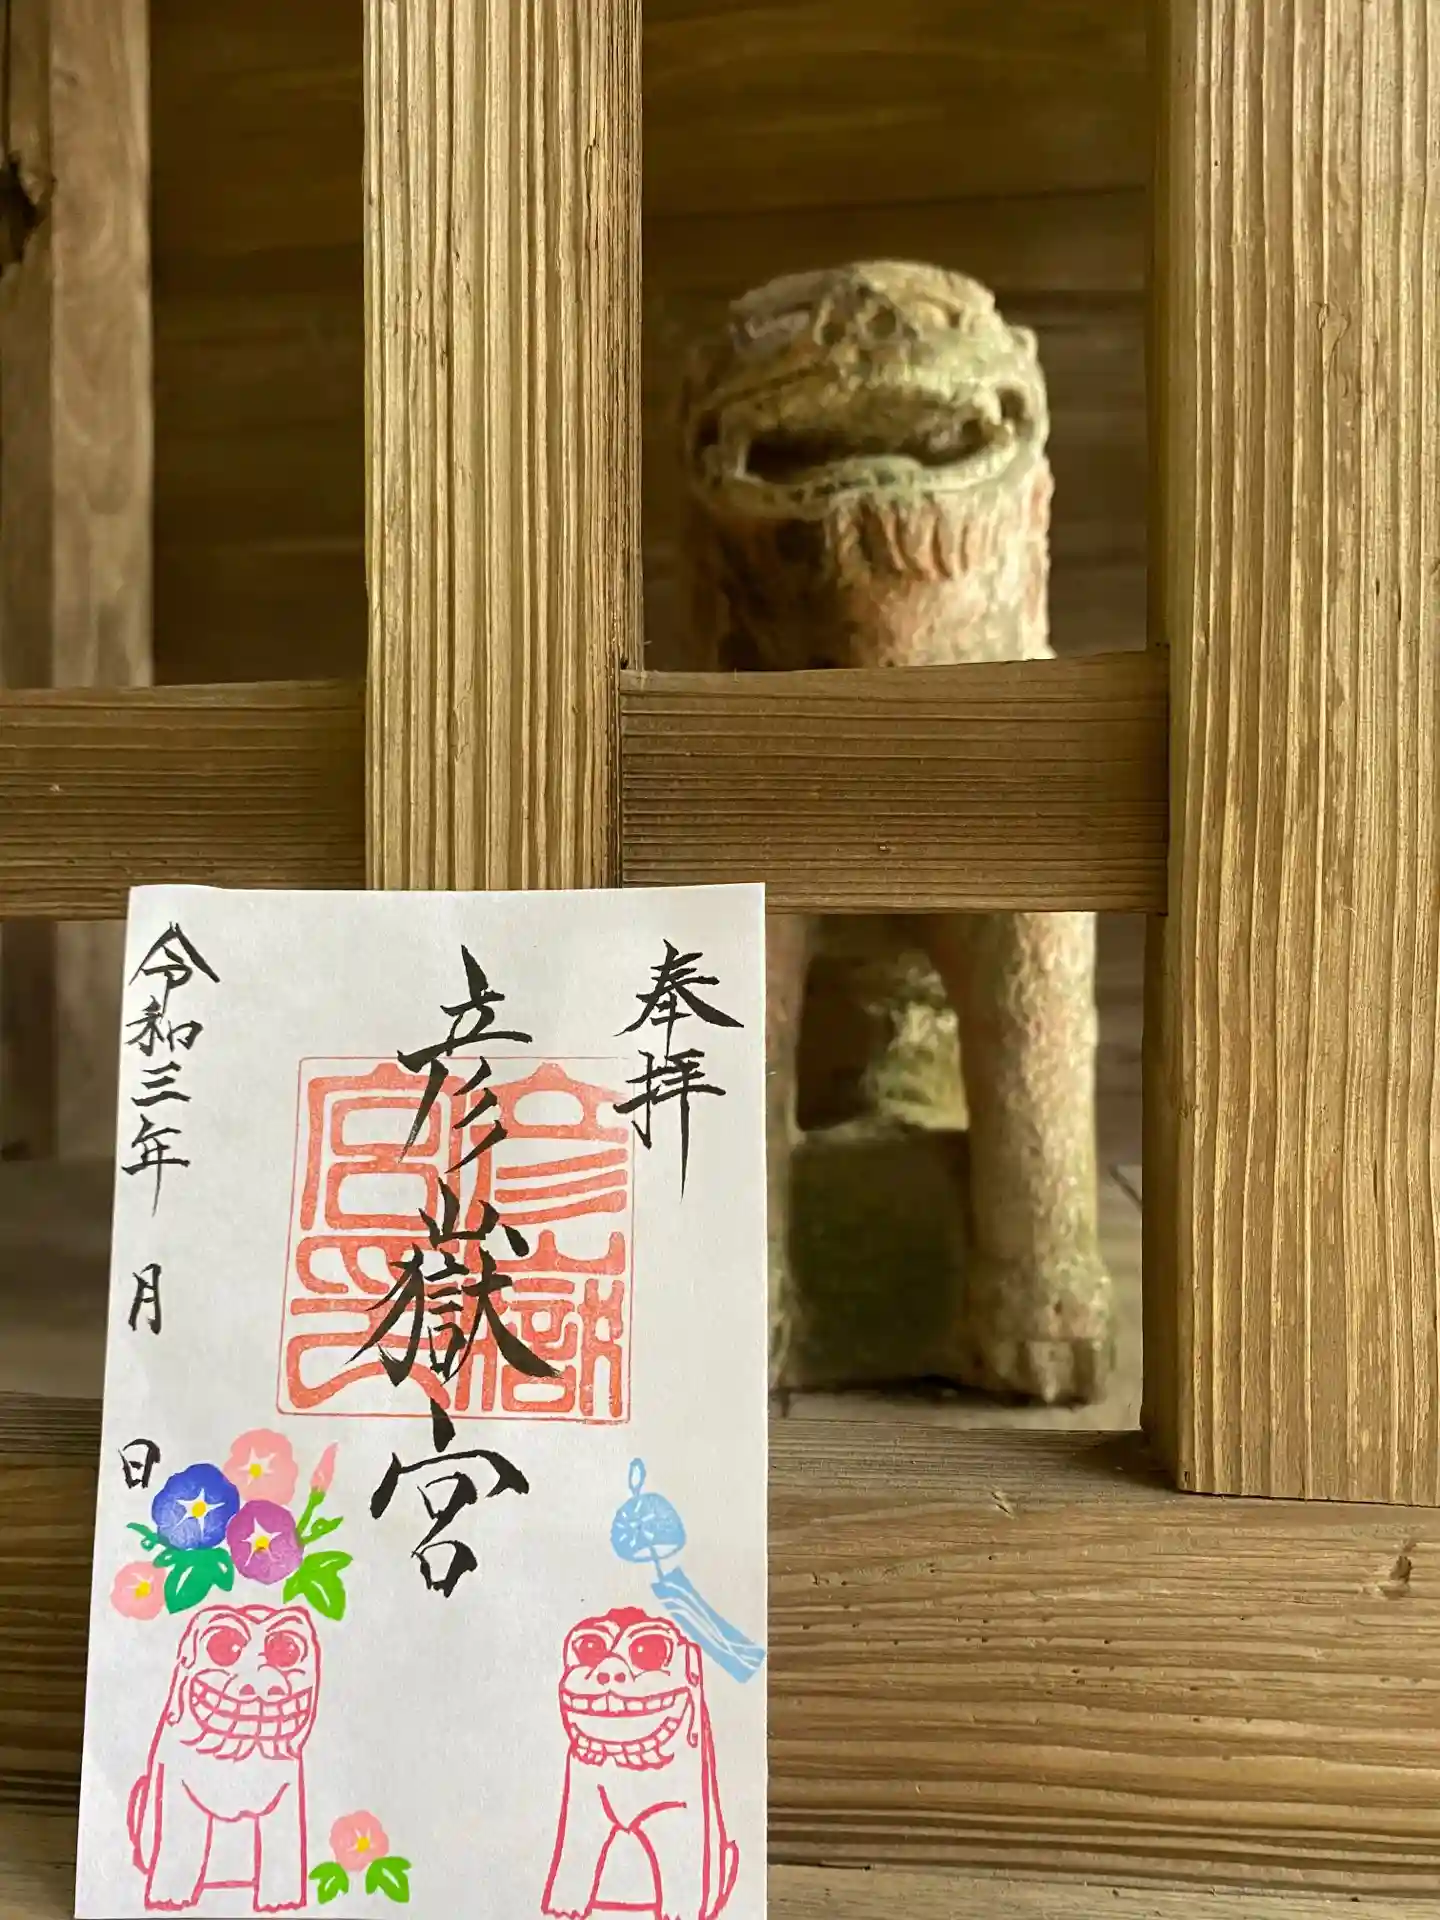 奉拝
彦山嶽宮
彦山嶽宮印
令和三年 月 日